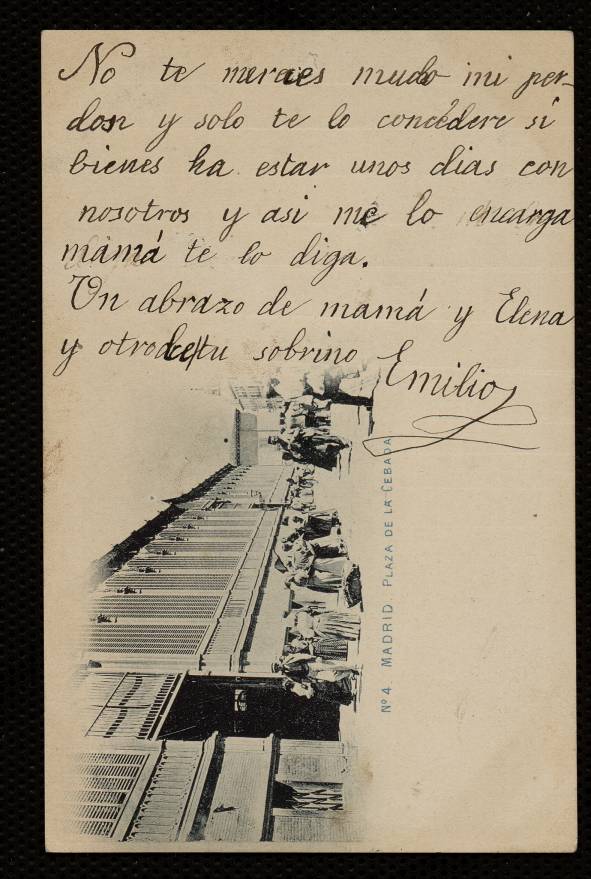 No te meraces mudo mi per-
don y solo te lo concédere si
bienes ha estar unos dias con
nosotros y asi me lo encarga
mámá te lo diga.
Un abrazo de mamá y Elena
y otro de tu sobrino
Emilio
Nº 4 MADRID PLAZA DE LA CEBADA